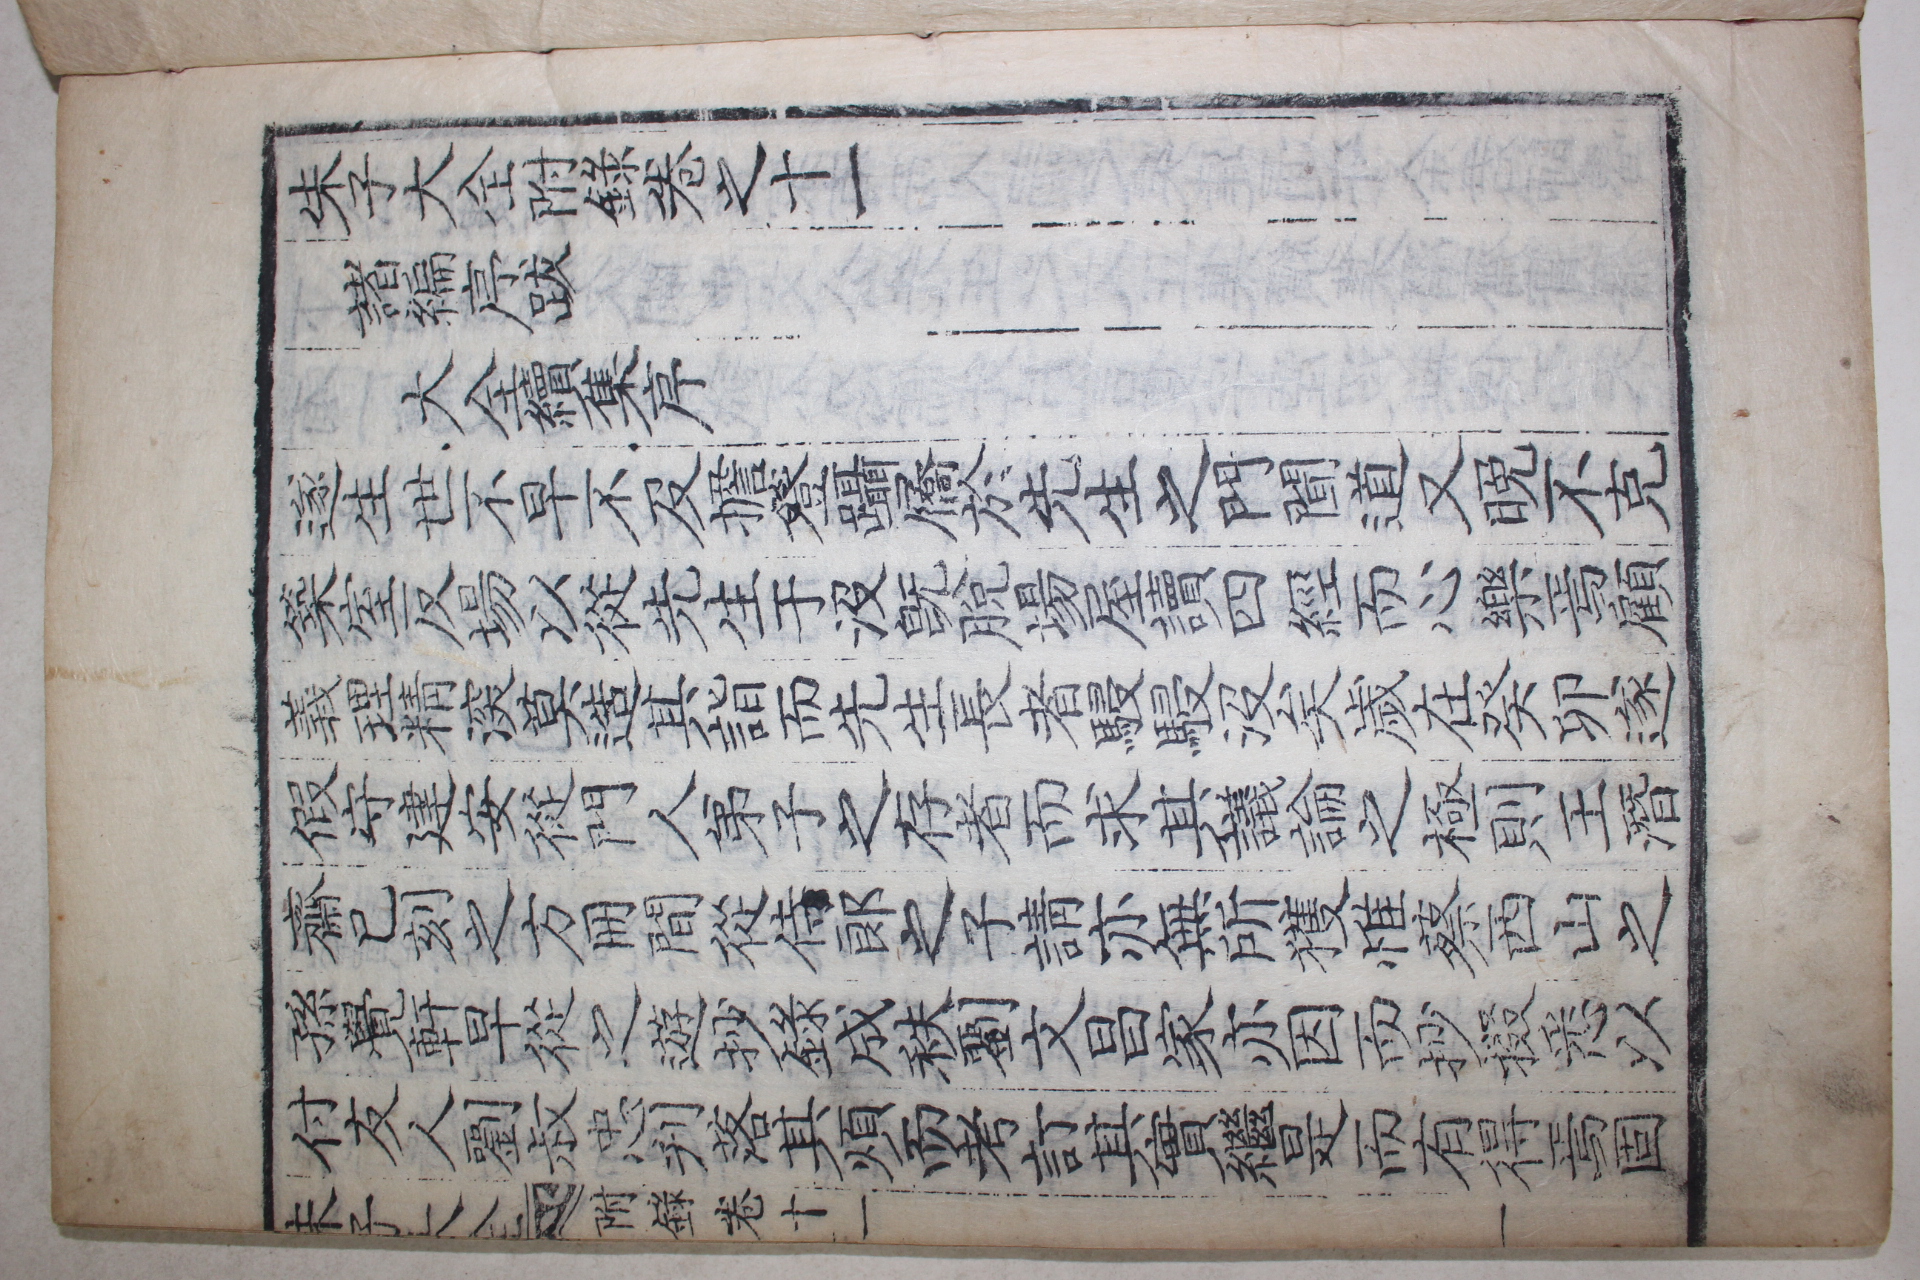 朱子大全附錄卷之十一
諸編序跋
大全續集序
遂生世不早不及擔簦躡屩於先生之門聞道又晚不克
築室反場以從先生于沒既脫場屋讀四經而心樂焉顧
義理精深莫造其詣而先生長者駸駸沒矣歲在癸卯遂
假守建安從門人弟子之存者而求其議論之極則王潛
齋已刻之方冊間從侍郎之子請亦無所獲惟蔡西山之
孫覺軒早從之遊抄錄成秩劉文昌家亦因而抄掇悉以
付友人劉叔忠刊落其煩而考訂其實繼是而有得焉固
朱子大全 附錄卷十一 一